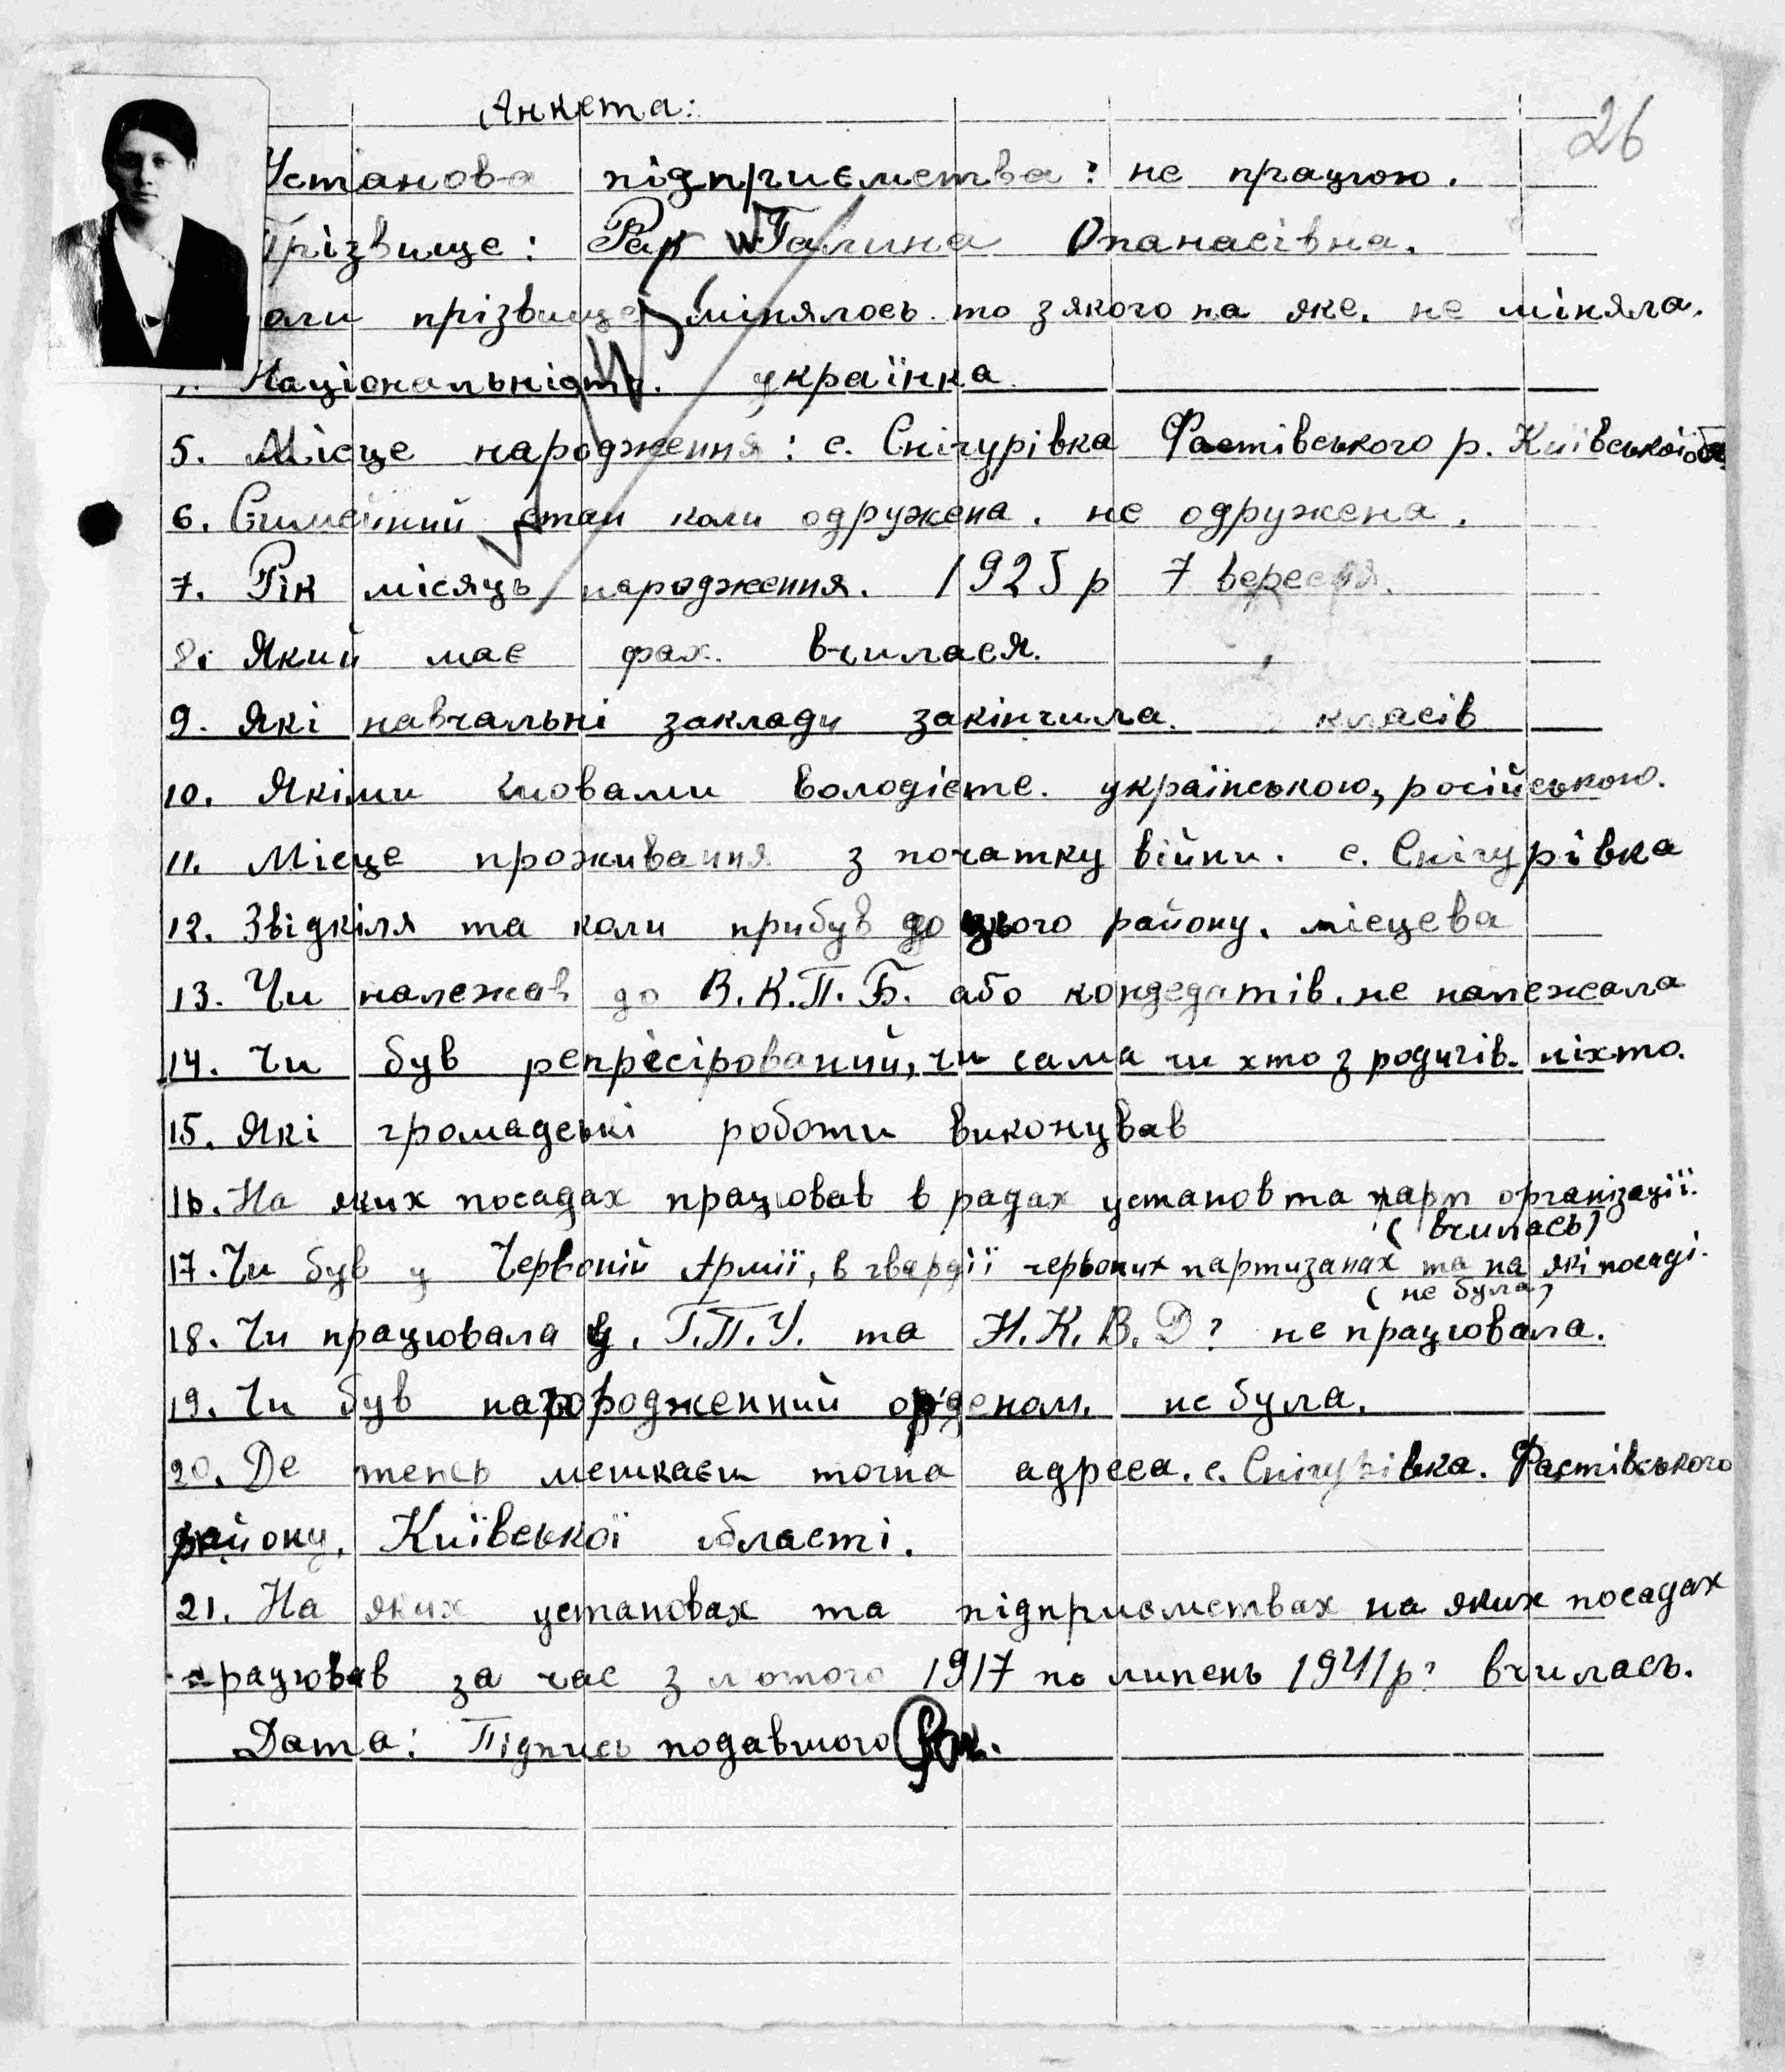 26
Анкета:
Установа підприємства: не працюю.
Прізвище: Рак Галина Опанасівна.
оли прізвище мінялось то з якого на яке. не міняла.
Національність. українка
5. Місце народження: с. Снігурівка Фастівського р. Київської об.
6. Сімейний стан коли одружена. не одружена.
7. Рік місяць народження. 1925 р 7 вересня.
8. Який має фах. вчилася.
9. Які навчальні заклади закінчила. класів
10. Якіми мовами володієте. українською, російською.
11. Місце проживання з початку війни. с. Снігурівка
12. Звідкіля та коли прибув до цього району. місцева
13. Чи належав до В.К.П.Б. або кондедатів. не належала
14. Чи був репресірований, чи сама чи хто з родичів. ніхто.
15. Які громадські роботи виконував
16. На яких посадах працював в радах установ та парт організації.
( вчилась)
17. Чи був у Червоній Армії, в гвардії червоних партизанах та на які посаді.
( не була)
18. Чи працювала у. Г.П.У. та Н.К.В.Д? не працювала.
19. Чи був нагородженний орденом. не була.
20. Де тепер мешкаєш точна адреса. с. Снігурівка. Фастівського
району. Київської області.
21. На яких установах та підприємствах на яких посадах
працював за час з лютого 1917 по липень 1941р? вчилась.
Дата: Підпись подавшого Рак.